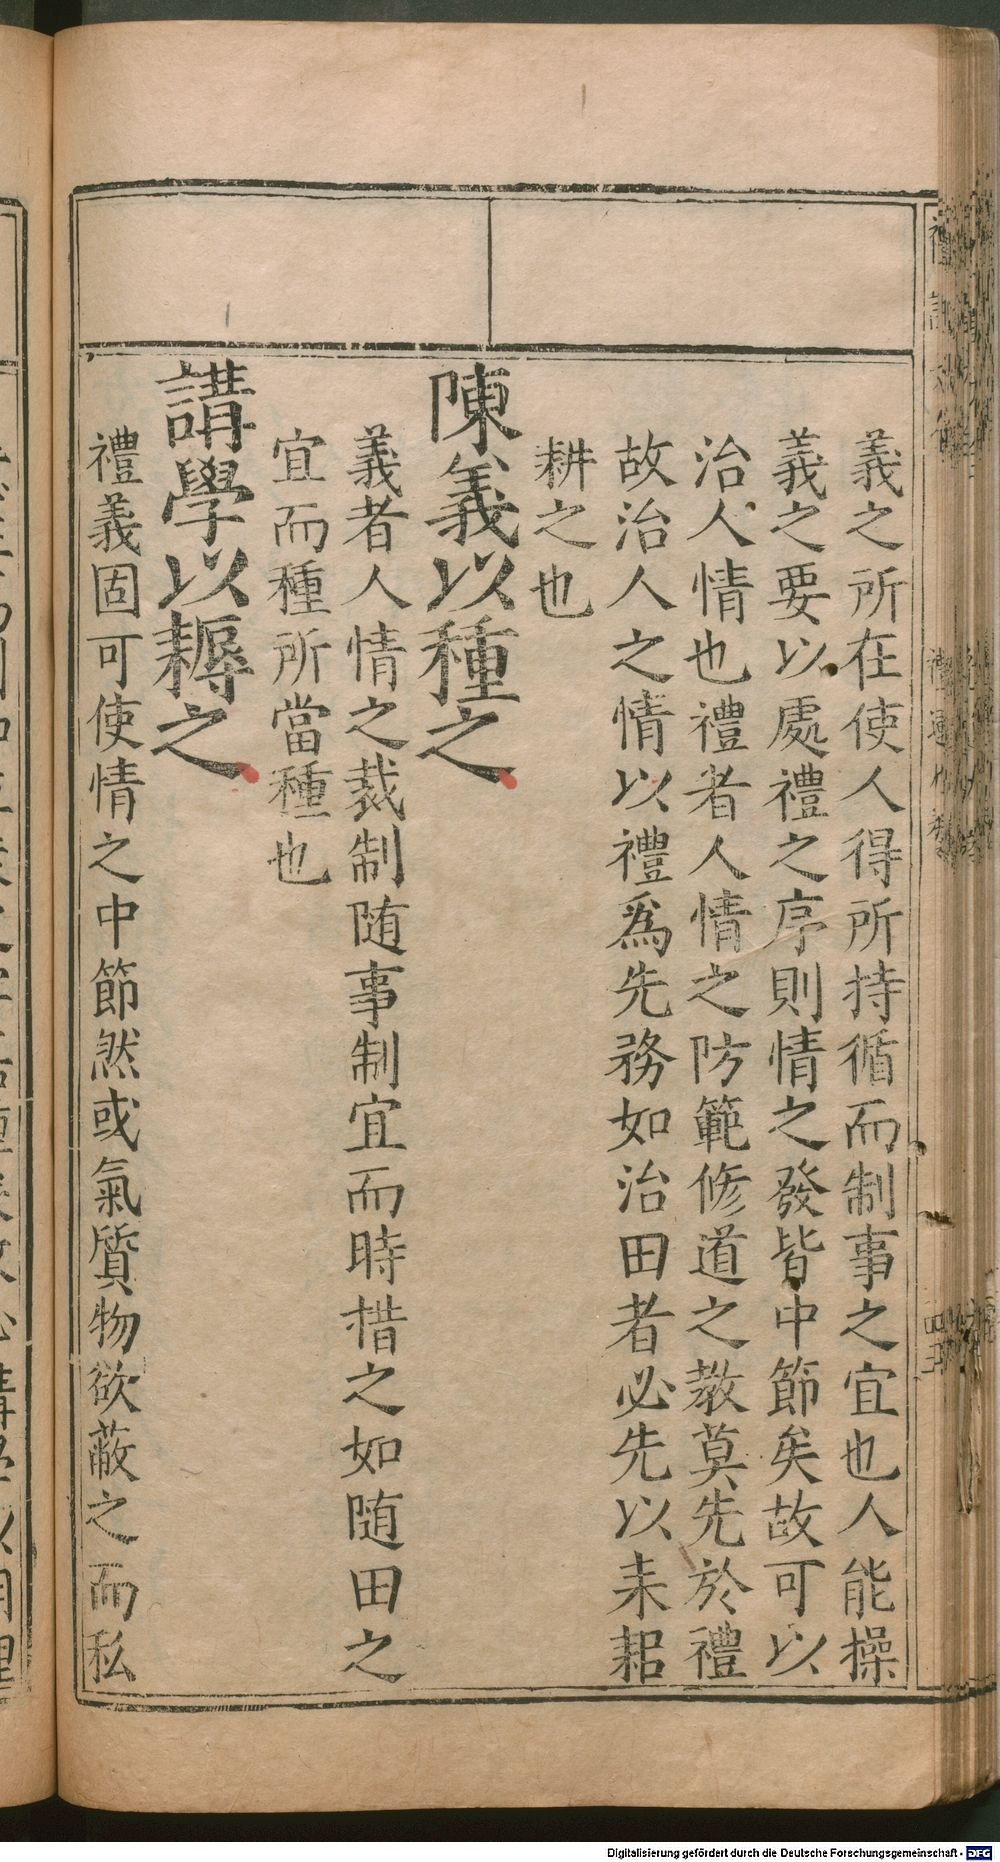 義之所在使人得所持循而制事之宜也人能操
義之要以處禮之序則情之發皆中節矣故可以
治人情也禮者人情之防範修道之教莫先於禮
故治人之情以禮爲先務如治田者必先以耒耜
耕之也
陳義以種之
義者人情之裁制随事制宜而時措之如随田之
宜而種所當種也
講學以耨之
禮義固可使情之中節然或氣質物欲蔽之而私
Digitalisierung gefördert durch die Deutsche Forschungsgemeinschaft - DFG